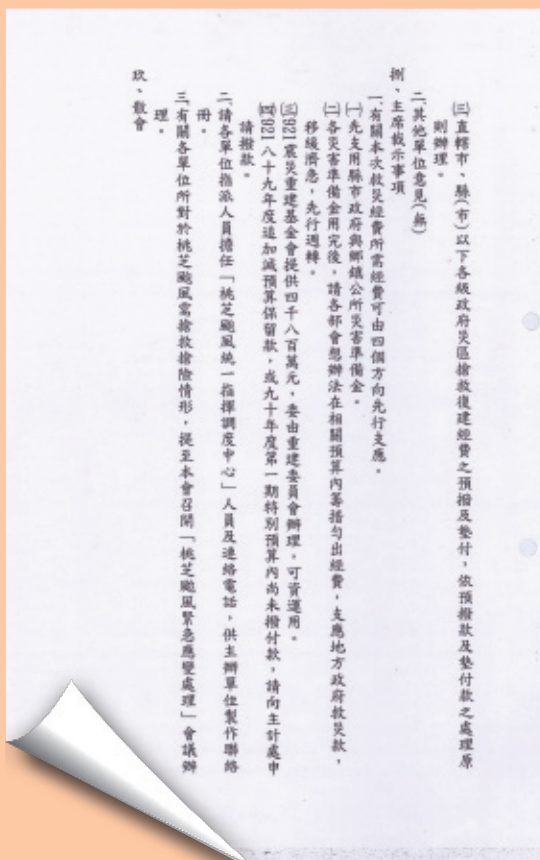 ㈢直轄市、縣(市)以下各級政府災區搶救復建經費之預撥及墊付，依預撥款及墊付款之處理原
則辦理。
二、其他單位意見(無)
捌、主席裁示事項
一、有關本次救災經費所需經費可由四個方向先行支應。
㈠先支用縣市政府與鄉鎮公所災害準備金。
㈡各災害準備金用完後，請各部會想辦法在相關預算內籌措勻出經費，支應地方政府救災款，
移緩濟急，先行週轉。
㈢921震災重建基金會提供四千八百萬元，委由重建委員會辦理，可資運用。
㈣921八十九年度追加減預算保留款，或九十年度第一期特別預算內尚未撥付款，請向主計處申
請撥款。
二、請各單位指派人員擔任「桃芝颱風統一指揮調度中心」人員及連絡電話，供主辦單位製作聯絡
冊。
三、有關各單位所對於桃芝颱風需搶救搶險情形，提至本會召開「桃芝颱風緊急應變處理」會議辦
理。
玖、散會